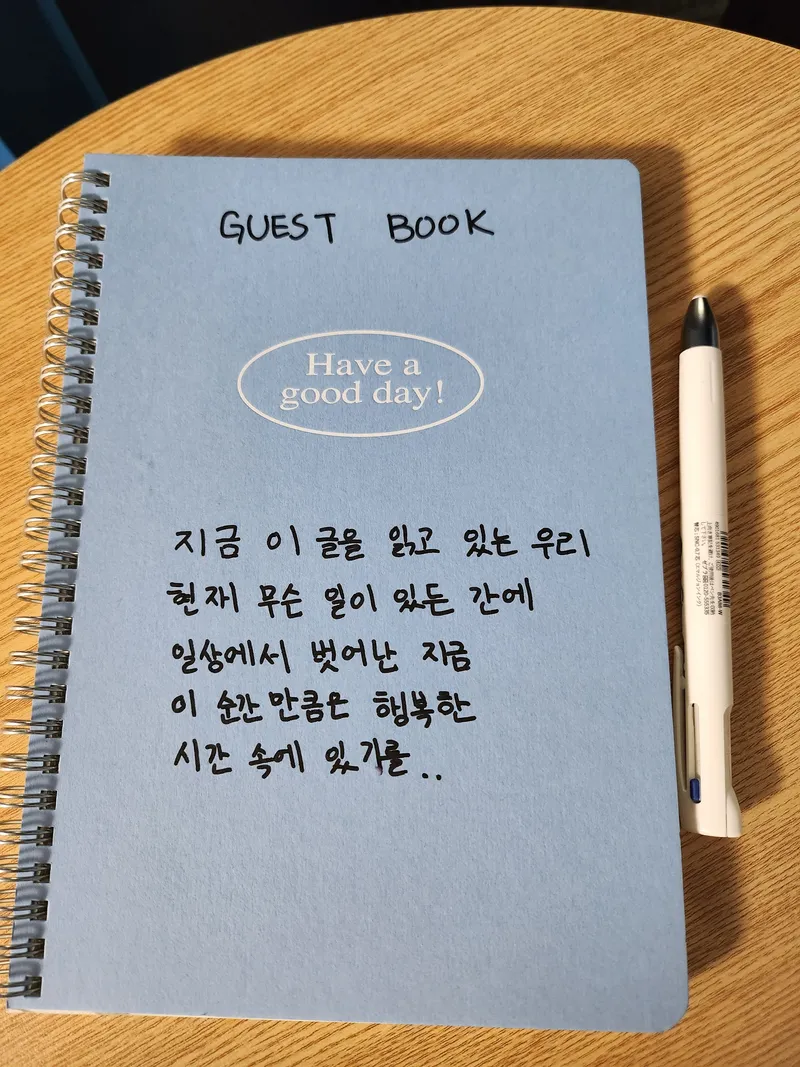 GUEST BOOK
Have a
good day!
지금 이 글을 읽고 있는 우리
현재 무슨 일이 있든 간에
일상에서 벗어난 지금
이 순간 만큼은 행복한
시간 속에 있기를..